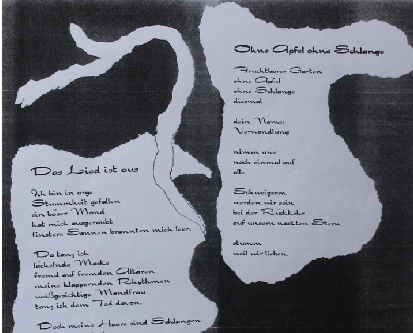 Das Lied ist aus
Ich bin in arge
Stummheit gefallen
ein böser Mond
hat mich ausgeraubt
finstere Sonnen brannten mich leer.
Da tanz ich
lächelnde Maske
fremd auf fremden Altären
meine klappernden Rhythmen
weißgesichtige Mondfrau
tanz ich dem Tod davon.
Doch meine Haare sind Schlangen
Ohne Apfel ohne Schlange
Fruchtbarer Garten
ohne Apfel
ohne Schlange
diesmal
dein Name:
Verwandlung
nimm uns
noch einmal auf
alle
Schweigsam
werden wir sein
bei der Rückkehr
auf unsern nackten Stern
stumm
weil wir lieben.